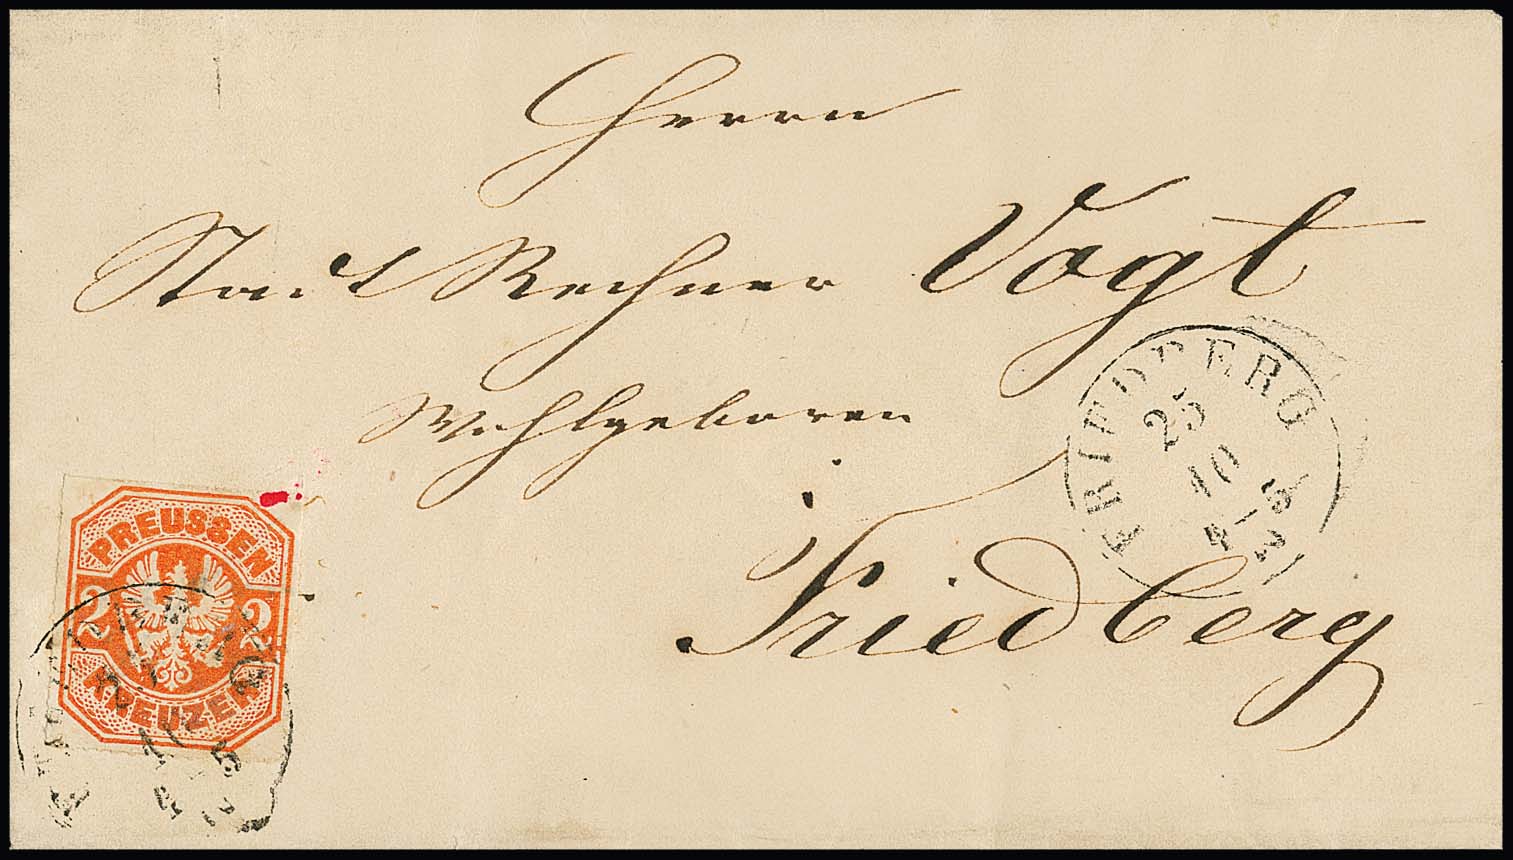 Herrn
Stadt Rechner Vogt
Wohlgeboren
Friedberg
FRIEDBERG
25
10
4-5
PREUSSEN
2 2
KREUZER